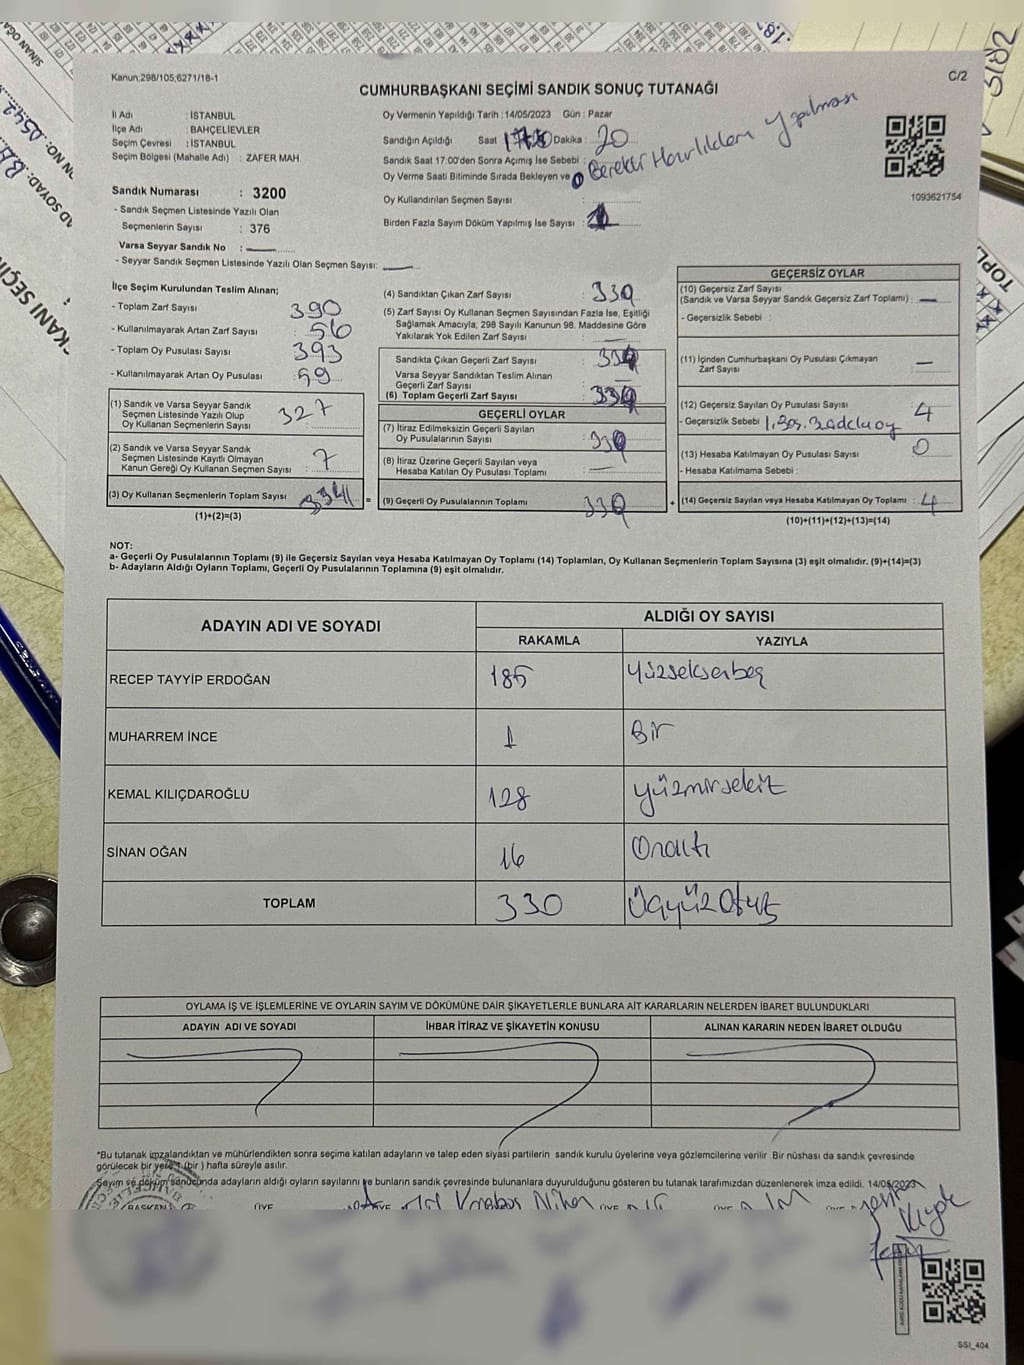 Kanun;298/105,6271/18-1
C/2
CUMHURBAŞKANI SEÇİMİ SANDIK SONUÇ TUTANAĞI
İl Adı : İSTANBUL
İlçe Adı : BAHÇELİEVLER
Seçim Çevresi : İSTANBUL
Seçim Bölgesi (Mahalle Adı) : ZAFER MAH.
Sandık Numarası : 3200
- Sandık Seçmen Listesinde Yazılı Olan
Seçmenlerin Sayısı : 376
Varsa Seyyar Sandık No :
- Seyyar Sandık Seçmen Listesinde Yazılı Olan Seçmen Sayısı:
Oy Vermenin Yapıldığı Tarih : 14/05/2023 Gün : Pazar
Sandığın Açıldığı Saat Dakika : 20
Sandık Saat 17:00'den Sonra Açımış İse Sebebi : Gerekli Hazırlıkların Yapılması
Oy Verme Saati Bitiminde Sırada Bekleyen ve
Oy Kullandırılan Seçmen Sayısı :
Birden Fazla Sayım Döküm Yapılmış İse Sayısı :
1093621754
İlçe Seçim Kurulundan Teslim Alınan;
- Toplam Zarf Sayısı : 390
- Kullanılmayarak Artan Zarf Sayısı : 56
- Toplam Oy Pusulası Sayısı : 393
- Kullanılmayarak Artan Oy Pusulası : 59
(1) Sandık ve Varsa Seyyar Sandık
Seçmen Listesinde Yazılı Olup
Oy Kullanan Seçmenlerin Sayısı : 327
(2) Sandık ve Varsa Seyyar Sandık
Seçmen Listesinde Kayıtlı Olmayan
Kanun Gereği Oy Kullanan Seçmen Sayısı : 7
(3) Oy Kullanan Seçmenlerin Toplam Sayısı : 334 =
(1)+(2)=(3)
(4) Sandıktan Çıkan Zarf Sayısı :
(5) Zarf Sayısı Oy Kullanan Seçmen Sayısından Fazla İse, Eşitliği
Sağlamak Amacıyla, 298 Sayılı Kanunun 98. Maddesine Göre
Yakılarak Yok Edilen Zarf Sayısı :
Sandıkta Çıkan Geçerli Zarf Sayısı : 334
Varsa Seyyar Sandıktan Teslim Alınan
Geçerli Zarf Sayısı :
(6) Toplam Geçerli Zarf Sayısı : 334
GEÇERLİ OYLAR
(7) İtiraz Edilmeksizin Geçerli Sayılan
Oy Pusulalarının Sayısı : 330
(8) İtiraz Üzerine Geçerli Sayılan veya
Hesaba Katılan Oy Pusulası Toplamı :
(9) Geçerli Oy Pusulalarının Toplamı : 330 +
GEÇERSİZ OYLAR
(10) Geçersiz Zarf Sayısı
(Sandık ve Varsa Seyyar Sandık Geçersiz Zarf Toplamı) :
- Geçersizlik Sebebi :
(11) İçinden Cumhurbaşkanı Oy Pusulası Çıkmayan
Zarf Sayısı :
(12) Geçersiz Sayılan Oy Pusulası Sayısı : 4
- Geçersizlik Sebebi
(13) Hesaba Katılmayan Oy Pusulası Sayısı : 0
- Hesaba Katılmama Sebebi :
(14) Geçersiz Sayılan veya Hesaba Katılmayan Oy Toplamı : 4
(10)+(11)+(12)+(13)=(14)
NOT:
a- Geçerli Oy Pusulalarının Toplamı (9) ile Geçersiz Sayılan veya Hesaba Katılmayan Oy Toplamı (14) Toplamları, Oy Kullanan Seçmenlerin Toplam Sayısına (3) eşit olmalıdır. (9)+(14)=(3)
b- Adayların Aldığı Oyların Toplamı, Geçerli Oy Pusulalarının Toplamına (9) eşit olmalıdır.
ADAYIN ADI VE SOYADI ALDIĞI OY SAYISI
RAKAMLA YAZIYLA
RECEP TAYYİP ERDOĞAN 185 Yüzseksenbeş
MUHARREM İNCE 1 Bir
KEMAL KILIÇDAROĞLU 128 Yüzyirmisekiz
SİNAN OĞAN 16 Onaltı
TOPLAM 330 ÜçyüzOtuz
OYLAMA İŞ VE İŞLEMLERİNE VE OYLARIN SAYIM VE DÖKÜMÜNE DAİR ŞİKAYETLERLE BUNLARA AİT KARARLARIN NELERDEN İBARET BULUNDUKLARI
ADAYIN ADI VE SOYADI İHBAR İTİRAZ VE ŞİKAYETİN KONUSU ALINAN KARARIN NEDEN İBARET OLDUĞU
*Bu tutanak imzalandıktan ve mühürlendikten sonra seçime katılan adayların ve talep eden siyasi partilerin sandık kurulu üyelerine veya gözlemcilerine verilir .Bir nüshası da sandık çevresinde
görülecek bir yere 1 (bir ) hafta süreyle asılır.
Sayım ve döküm sonucunda adayların aldığı oyların sayılarını ve bunların sandık çevresinde bulunanlara duyurulduğunu gösteren bu tutanak tarafımızdan düzenlenerek imza edildi. 14/05/2023
BAŞKAN ÜYE
SSI_404